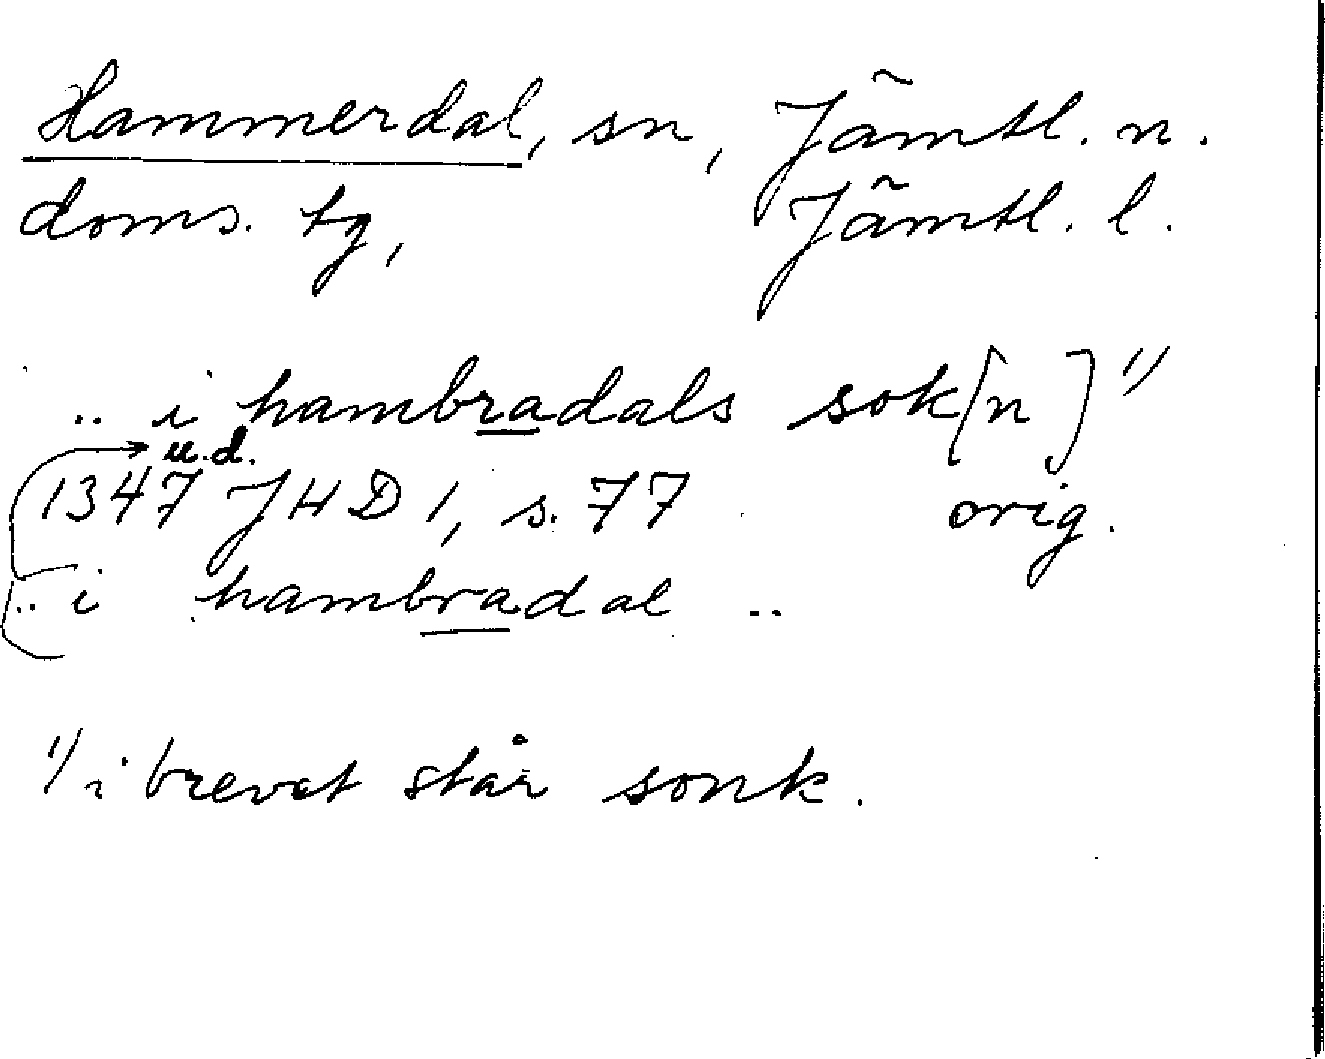 Hammerdal, sn, Jämtl. n.
doms. tg, Jämtl. l.
.. i hambradals sok[n] 1)
u.d.
1347 JHD 1, s. 77 orig.
.. i hambradal ..
1) i brevet står sonk.